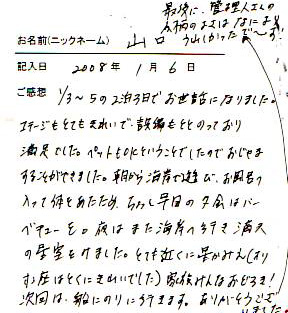 最後に、管理人さんの
人柄のよさはなにより
うれしかったで〜す!
お名前(ニックネーム) 山口
記入日 2008年 1月 6日
ご感想 1/3〜5の2泊3日でお世話になりました。
ステージもとてもきれいで、設備もととのっており
満足でした。ペットもOKということでしたのでおじゃま
することができました。朝から海岸で遊び、お風呂へ
入って体をあたため、ちょっと早目の夕食はバー
ベキューを。夜はまた海岸へ行き満天
の星空をみました。とても近くに星がみえ(オリ
オン座はとくにきれいでした)家族みんなおどろき!
次回は、船にのりに行きます。ありがとうござ
いました。